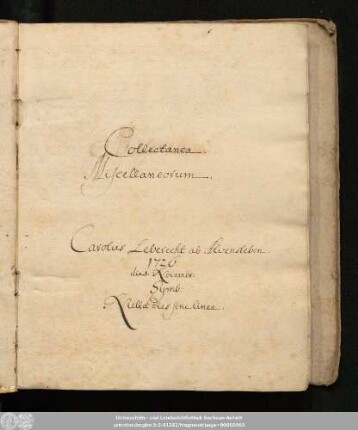 Collectanea
Miscellaneorum.
Carolus Lebrecht ab Alvensleben
1726
dies Novembr.
Symb.
Nulla dies sine linea.
Universitäts- und Landesbibliothek Sachsen-Anhalt